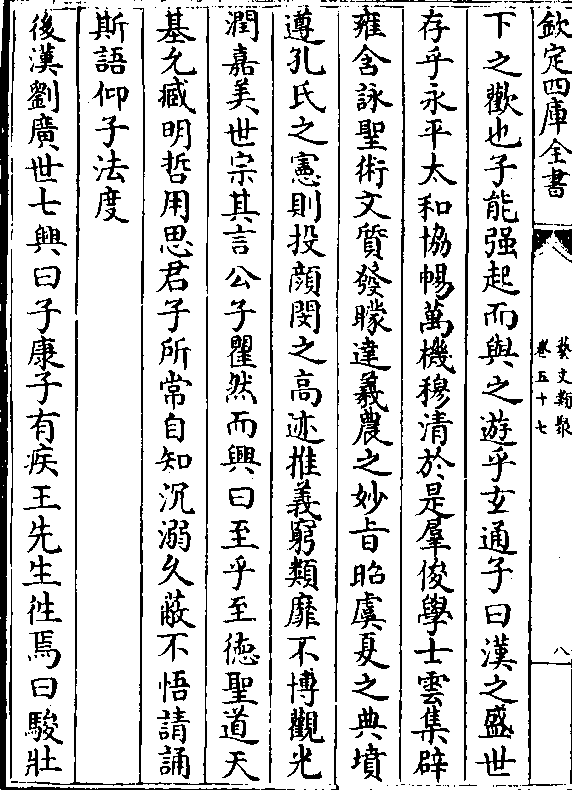 欽定四庫全書
藝文類聚
卷五十七
八
下之歡也子能强起而與之遊乎玄通子曰漢之盛世
存乎永平太和協暢萬機穆清於是羣俊學士雲集辟
雍含詠聖術文質發矇達羲農之妙旨昭虞夏之典墳
遵孔氏之憲則投顔閔之高迹推義窮類靡不博觀光
潤嘉美世宗其言公子瞿然而興曰至乎至德聖道天
基允臧明哲用思君子所常自知沉溺久蔽不悟請誦
斯語仰子法度
後漢劉廣世七興曰子康子有疾王先生徃焉曰駿壯